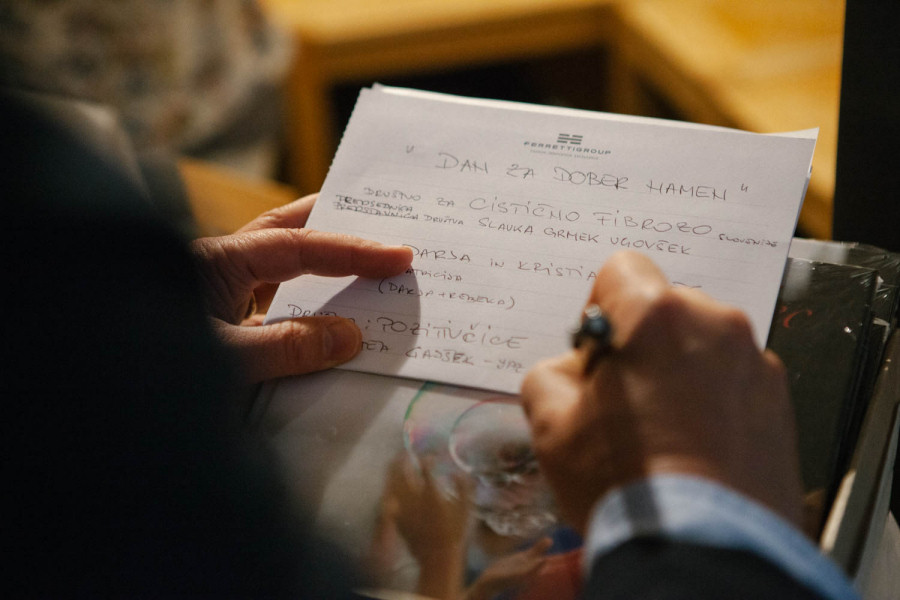 FERRETTIGROUP
" DAN ZA DOBER NAMEN "
DRUŠTVO ZA CISTIČNO FIBROZO SLOVENIJE
PREDSEDNICA DRUŠTVA SLAVKA GRMEK UGOVŠEK
DARJA IN KRISTIA
(DARJA + REBEKA)
: POZITIVČICE
GAJŠEK -